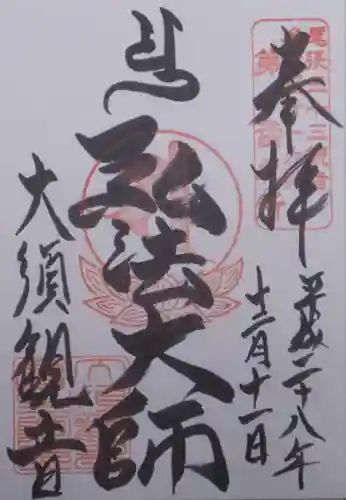 奉拝
平成二十八年
十二月十一日
弘法大師
大須観音